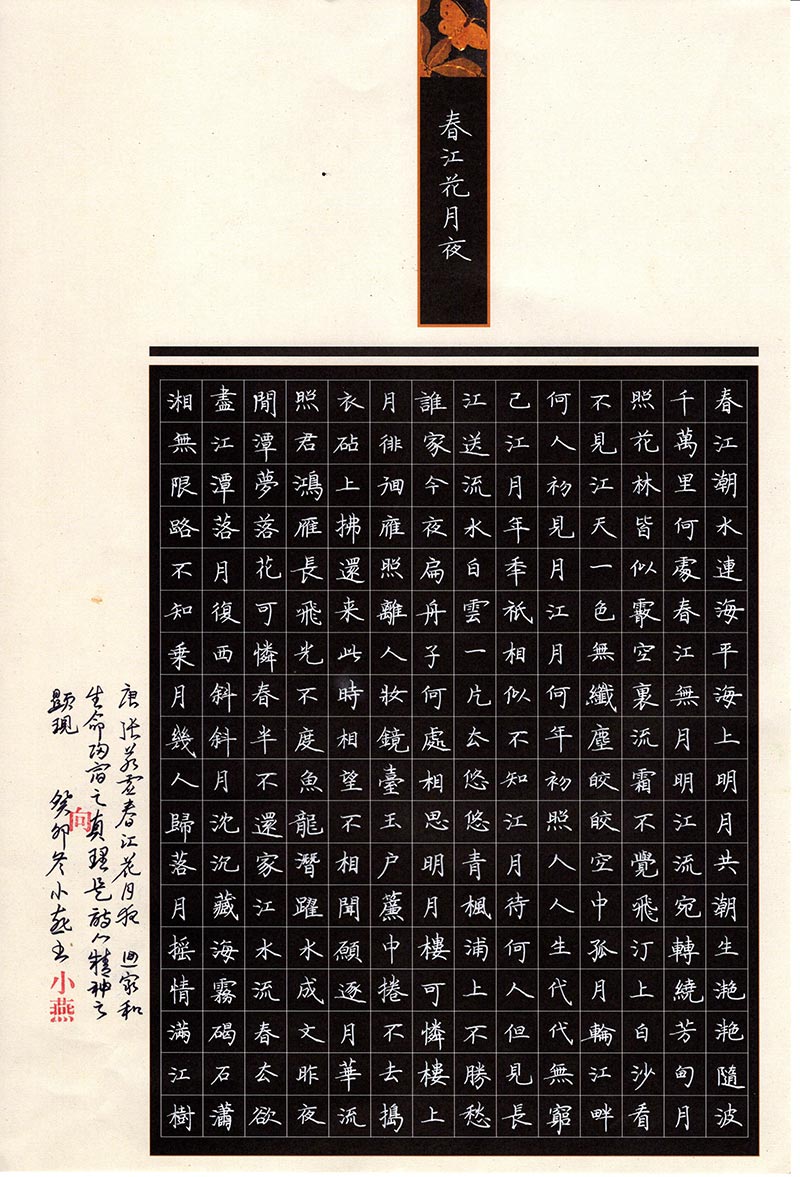 春江花月夜
春江潮水連海平海上明月共潮生灧灧隨波
千萬里何處春江無月明江流宛轉繞芳甸月
照花林皆似霰空裏流霜不覺飛汀上白沙看
不見江天一色無纖塵皎皎空中孤月輪江畔
何人初見月江月何年初照人人生代代無窮
已江月年秊祇相似不知江月待何人但見長
江送流水白雲一片厺悠悠青楓浦上不勝愁
誰家今夜扁舟子何處相思明月樓可憐樓上
月徘徊雁照離人妝鏡臺玉户簾中捲不去搗
衣砧上拂還来此時相望不相聞願逐月華流
照君鴻雁長飛光不度魚龍潛躍水成文昨夜
閒潭夢落花可憐春半不還家江水流春厺欲
盡江潭落月復西斜斜月沈沉藏海霧碣石瀟
湘無限路不知乘月幾人歸落月摇情滿江樹
唐張若虛春江花月夜 迴家和
生命歸宿之真理是詩人精神之
顯現 癸卯冬小燕书
向
小燕